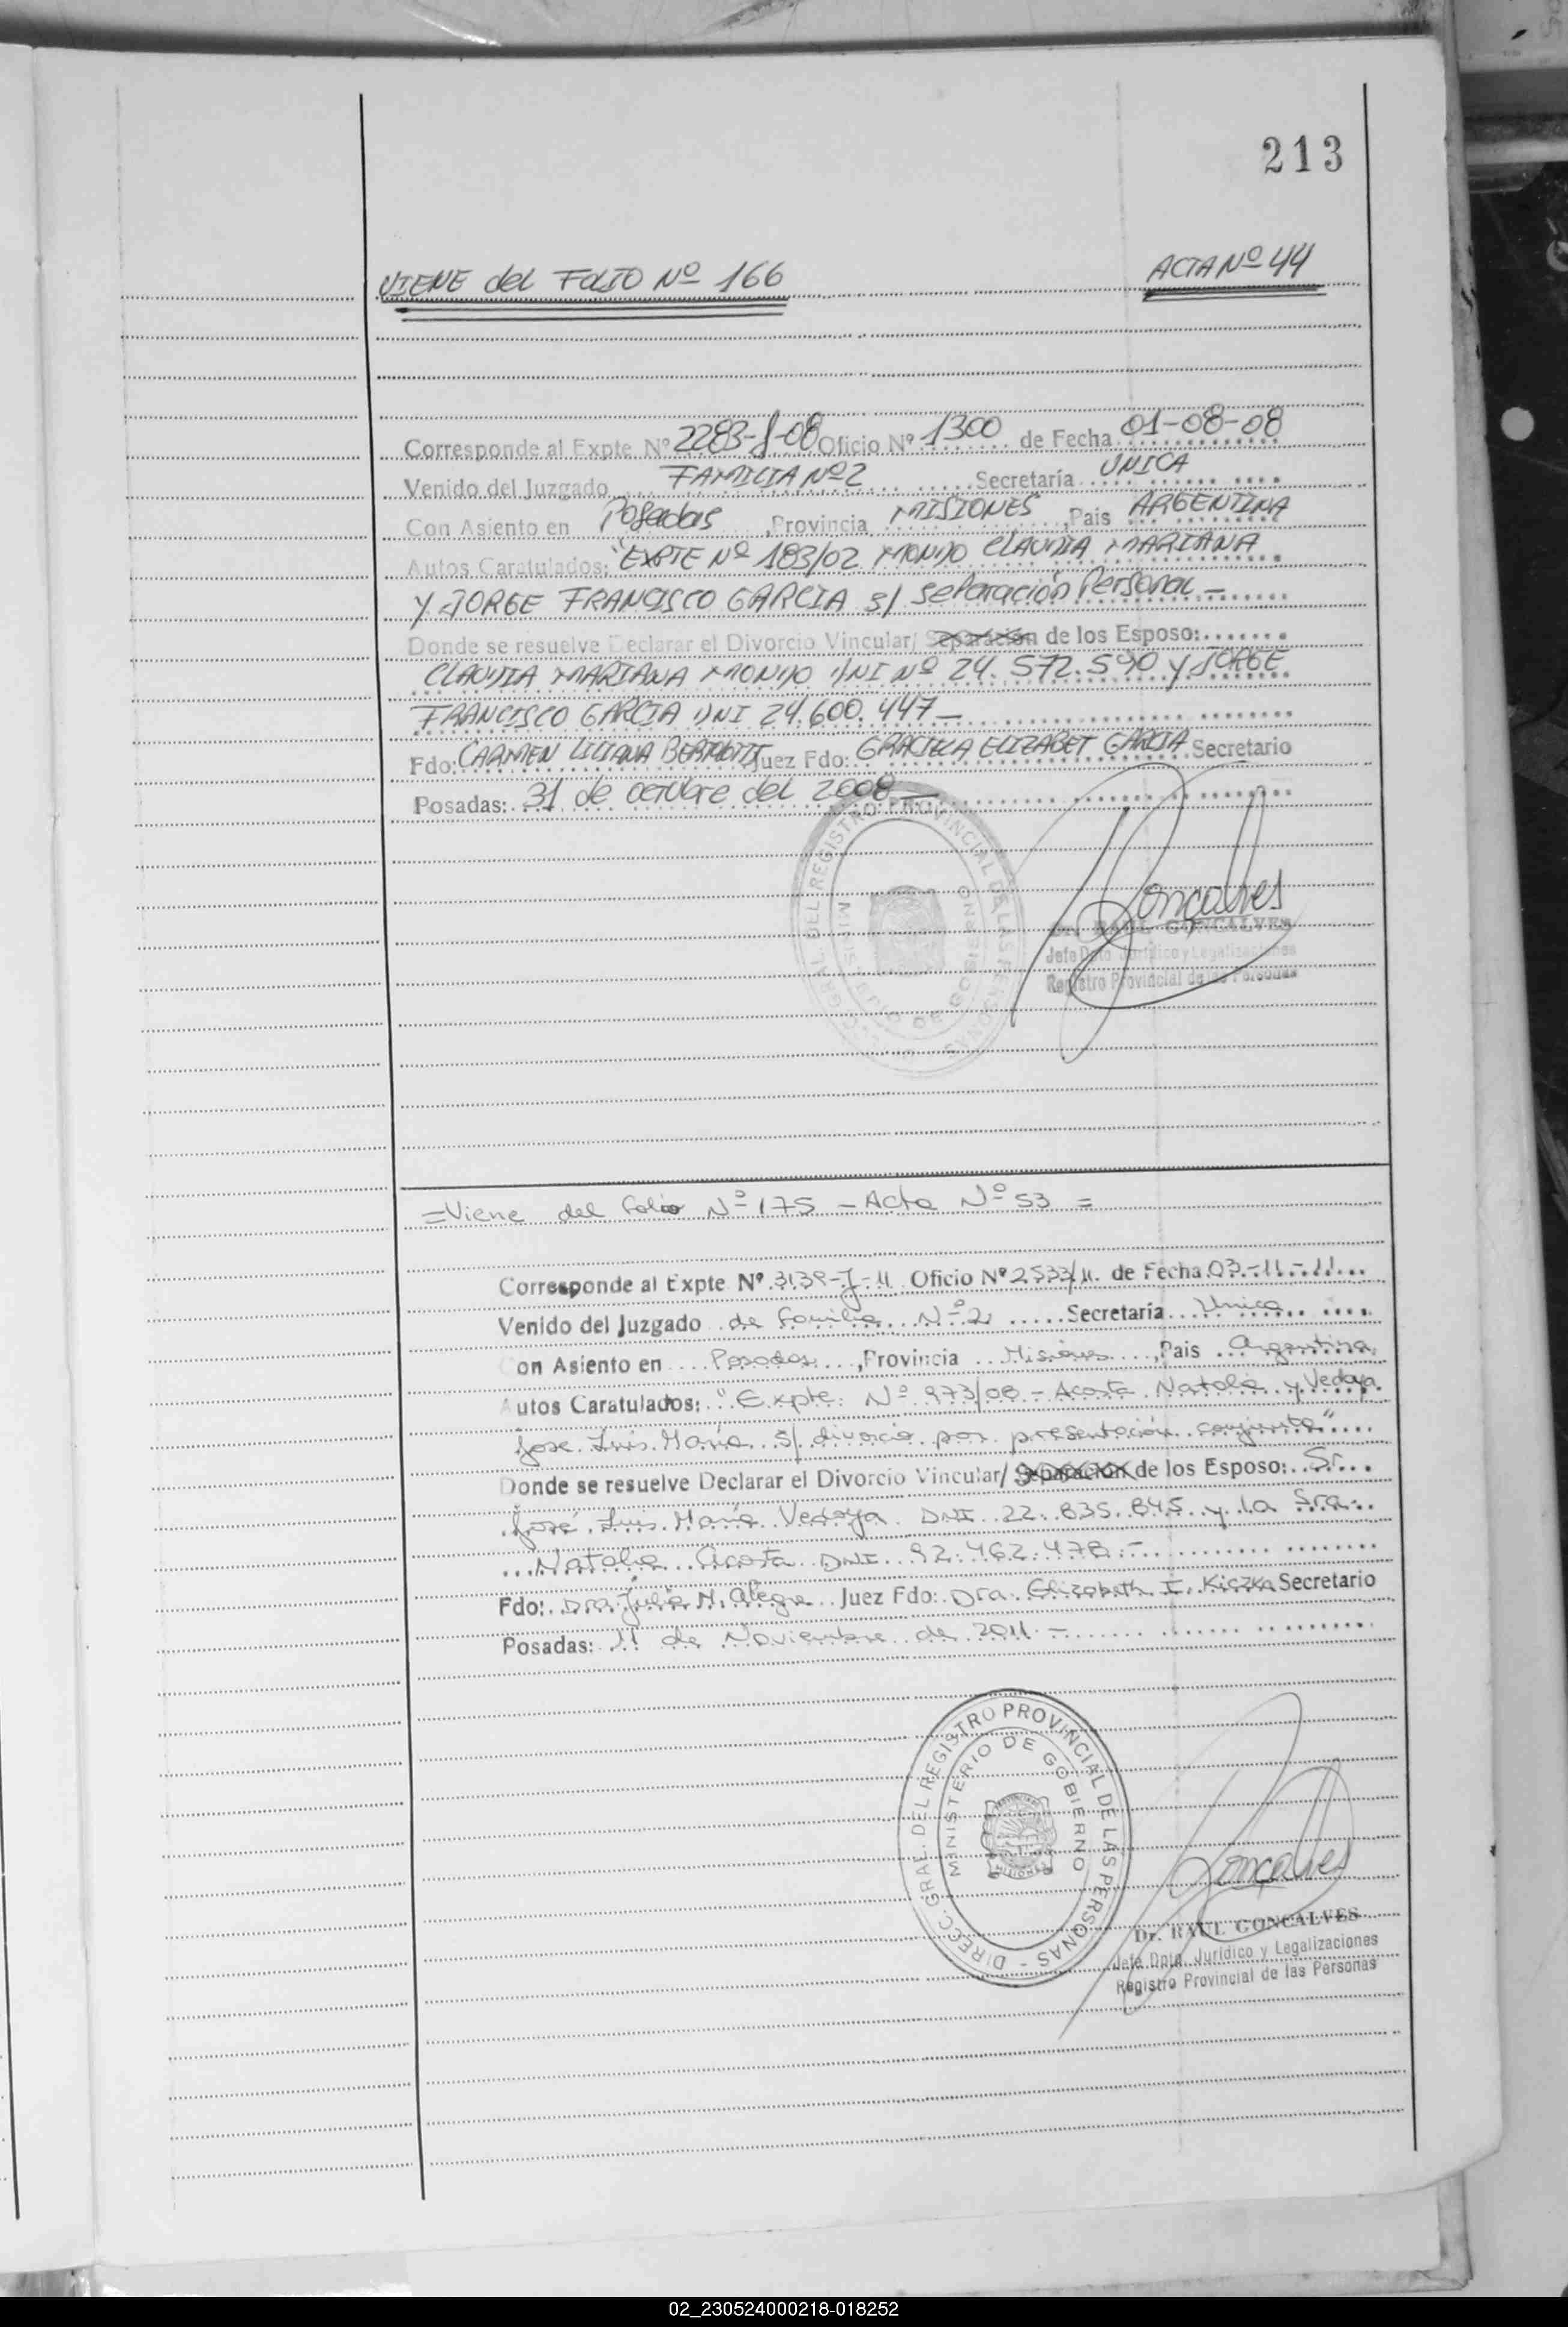 213
VIENE del FOLIO Nº 166 ACTA Nº 44
Corresponde al Expte Nº 2283-J-08 Oficio Nº 1300 de Fecha 01-08-08
Venido del Juzgado FAMILIA Nº 2 Secretaría UNICA
Con Asiento en Posadas, Provincia MISIONES, Pais ARGENTINA
Autos Caratulados: "EXPTE Nº 183/02 MONDO CLAUDIA MARIANA
Y JORGE FRANCISCO GARCIA s/ Separación Personal —
Donde se resuelve Declarar el Divorcio Vincular/ Separación de los Esposo:
CLAUDIA MARIANA MONDO DNI Nº 24.572.590 y JORGE
FRANCISCO GARCIA DNI 24.600.447 —
Fdo: CARMEN LILIANA Juez Fdo: GRACIELA ELIZABET GARCIA Secretario
Posadas: 31 de octubre del 2008 —
DIRECC. GRAL. DEL REGISTRO PROVINCIAL DE LAS PERSONAS
MINISTERIO DE GOBIERNO
Goncalves
Dr. RAUL GONCALVES
Jefe Dpto. Jurídico y Legalizaciones
Registro Provincial de las Personas
= Viene del folio Nº 175 - Acta Nº 53 =
Corresponde al Expte Nº 3139-J-11 Oficio Nº 2533/11 de Fecha 03-11-11
Venido del Juzgado de Familia Nº 2 Secretaría Unica
Con Asiento en Posadas, Provincia Misiones, Pais Argentina
Autos Caratulados: "Expte. Nº 973/08 - Acosta Natalia y Vedoya
José Luis María s/ divorcio por presentación conjunta"
Donde se resuelve Declarar el Divorcio Vincular/ Separación de los Esposo: Sr.
José Luis María Vedoya DNI 22.835.845 y la Sra.
Natalia Acosta DNI 92.462.478.-
Fdo: Dra. Julia N. Alegre Juez Fdo: Dra. Elizabeth I. Kiczka Secretario
Posadas: 11 de Noviembre de 2011 -
DIRECC. GRAL. DEL REGISTRO PROVINCIAL DE LAS PERSONAS
MINISTERIO DE GOBIERNO
Goncalves
Dr. RAUL GONCALVES
Jefe Dpto. Jurídico y Legalizaciones
Registro Provincial de las Personas
02_230524000218-018252